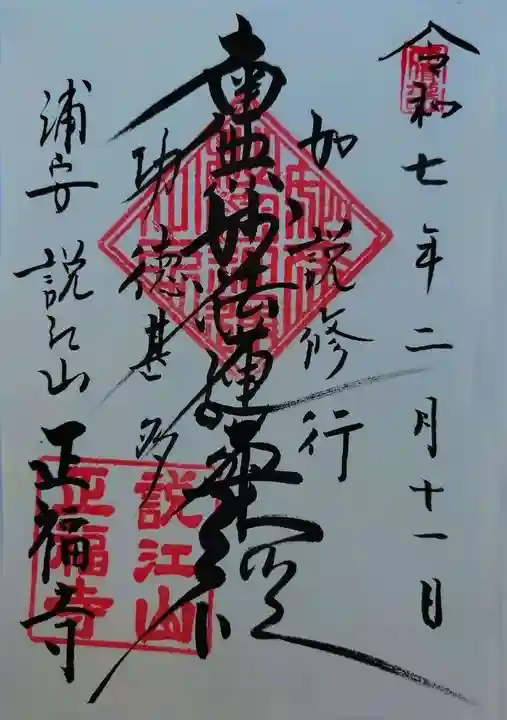 令和七年二月十一日
如説修行
南無妙法蓮華経
功徳甚多
浦安 説江山 正福寺
説江山
正福寺